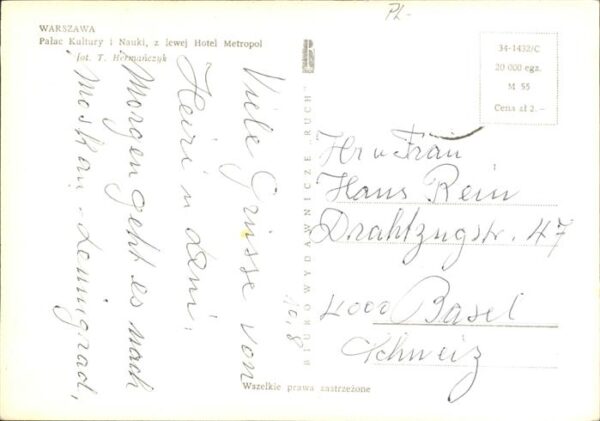 PL-
WARSZAWA
Pałac Kultury i Nauki, z lewej Hotel Metropol
fot. T. Hermańczyk
34-1432/C
20 000 egz.
M 55
Cena zł 2.–
BIURO WYDAWNICZE „RUCH"
10.8
Viele Grüsse von
Heiri u
Morgen geht es nach
Moskau, Leningrad,
Hr u Frau
Hans Rein
Drahtzugstr. 47
4000 Basel
Schweiz
Wszelkie prawa zastrzeżone